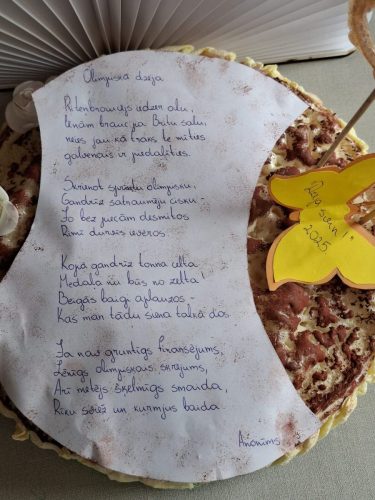 Olimpiskā dzeja
Ritenbraucējs iedzer alu,
Lēnām brauc pa Britu salu,
neies jau kā traks te mīties
galvenais ir piedalīties.
Skrienot sprintu olimpisku,
Gandrīz satraumēju cisku -
Jo bez piecām desmitos
Rimi durvis ieveros.
Kopā gandrīz tonna celta
Medaļa nu būs no zelta!
Beigās baigi aplauzos -
Kas man tādu siena talkā dos.
Ja nav gruntīgs finansējums,
Lēnīgs olimpiskais skrējums,
Arī metējs šķelmīgs smaida,
Ripu sviež un kurmjus baida.
Anonīms
2025